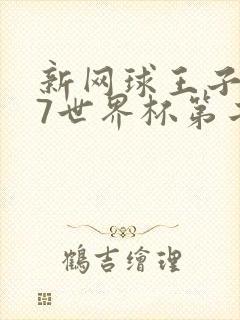 新网球王子
7世界杯第
鹤吉繪理